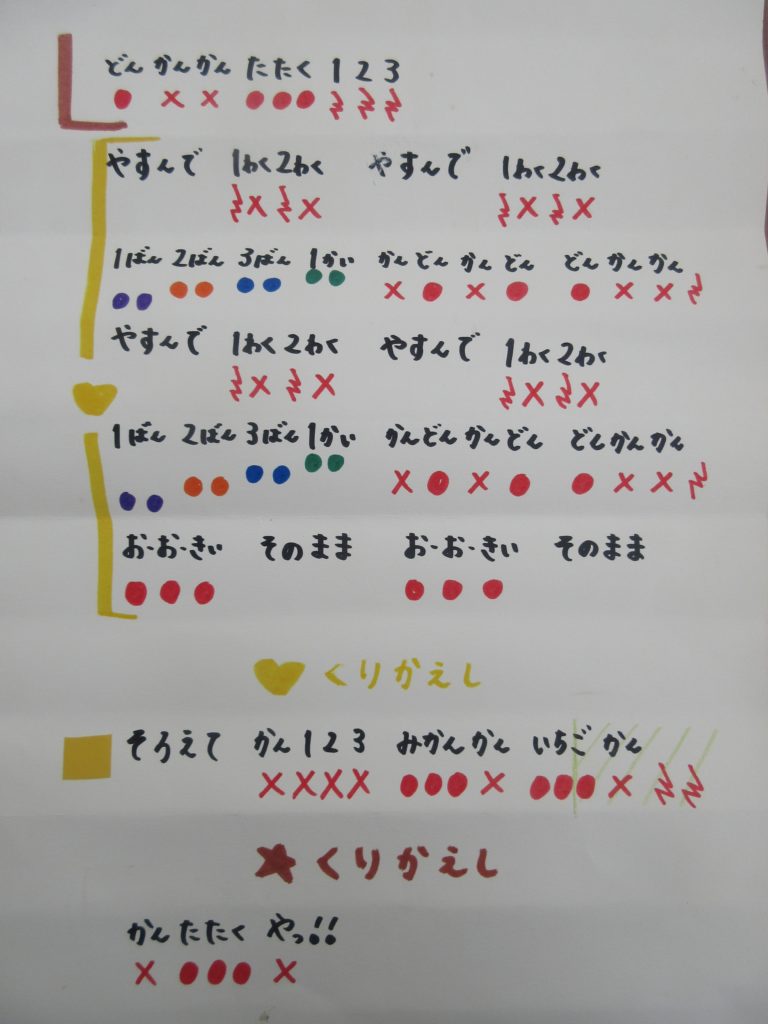 どん かんかん たたく 1 2 3
やすんで 1わく2わく やすんで 1わく2わく
1ばん 2ばん 3ばん 1かい かんどんかんどん どんかんかん
やすんで 1わく2わく やすんで 1わく2わく
1ばん 2ばん 3ばん 1かい かんどんかんどん どんかんかん
お・お・きい そのまま お・お・きい そのまま
くりかえし
そろえて かん 1 2 3 みかんかん いちごかん
くりかえし
かん たたく やっ!!